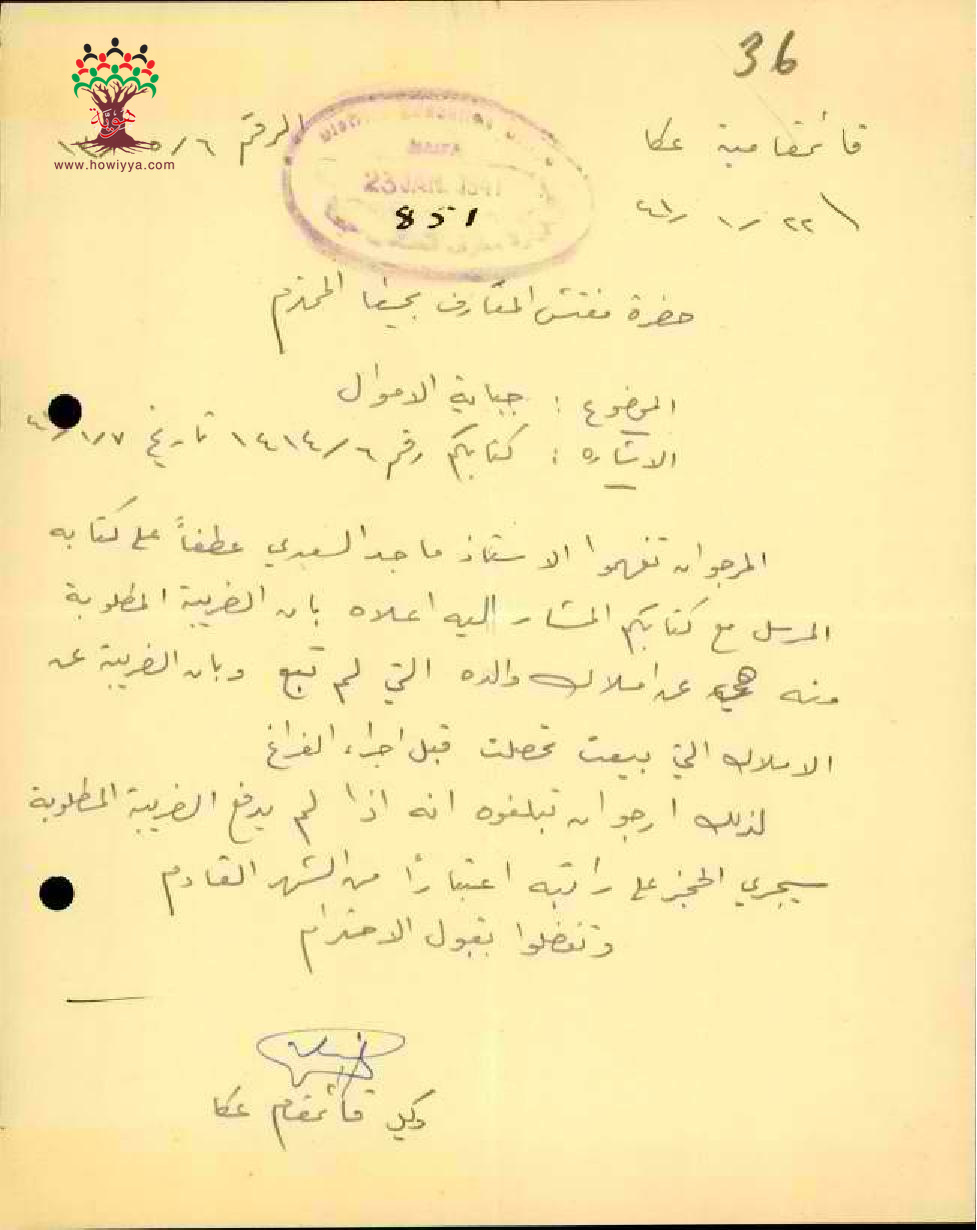 36
هويّة
www.howiyya.com
قائمقامية عكا
الرقم
٢٢ / ١ / ٤١
HAIFA
23 JAN. 1941
851
حضرة مفتش المعارف بحيفا المحترم
الموضوع : جباية الاموال
الاشاره : كتابكم رقم ١٤١٤/٦ تاريخ ١/٧/٤١
المرجو ان تفهموا الاستاذ ماجد السعدي عطفاً على كتابه
المرسل مع كتابكم المشار اليه اعلاه بان الضريبة المطلوبة
منه هي عن املاك والده التي لم تبع وبان الضريبة عن
الاملاك التي بيعت تحصلت قبل اجراء الفراغ
لذلك ارجو ان تبلغوه انه اذا لم يدفع الضريبة المطلوبة
سيجري الحجز على راتبه اعتباراً من الشهر القادم
وتفضلوا بقبول الاحترام
وكيل قائمقام عكا